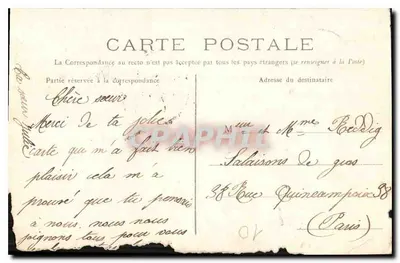 CARTE POSTALE
La Correspondance au recto n'est pas acceptée par tous les pays étrangers (se renseigner à la Poste)
Partie réservée à la correspondance
Adresse du destinataire
Ta sœur Julie
Chère sœur
Merci de ta jolie
carte qui m'a fait bien
plaisir cela m'a
prouvé que tu pensais
à nous, nous nous
joignons tous pour vous
et Mme Reddig
Salaisons de gros
38 Rue Quincampoix 38
(Paris)